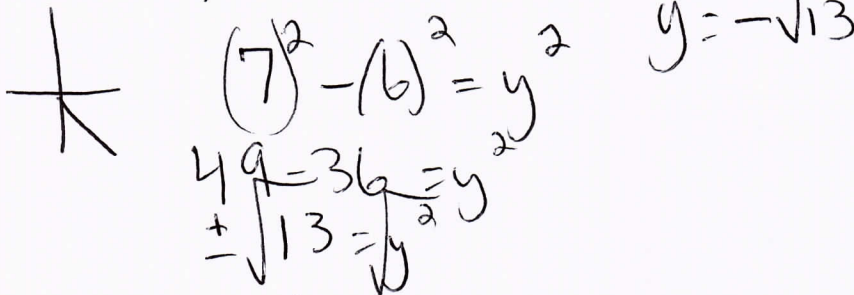 (7)² - (6)² = y²
y = -√13
49 - 36 = y²
±√13 = √y²